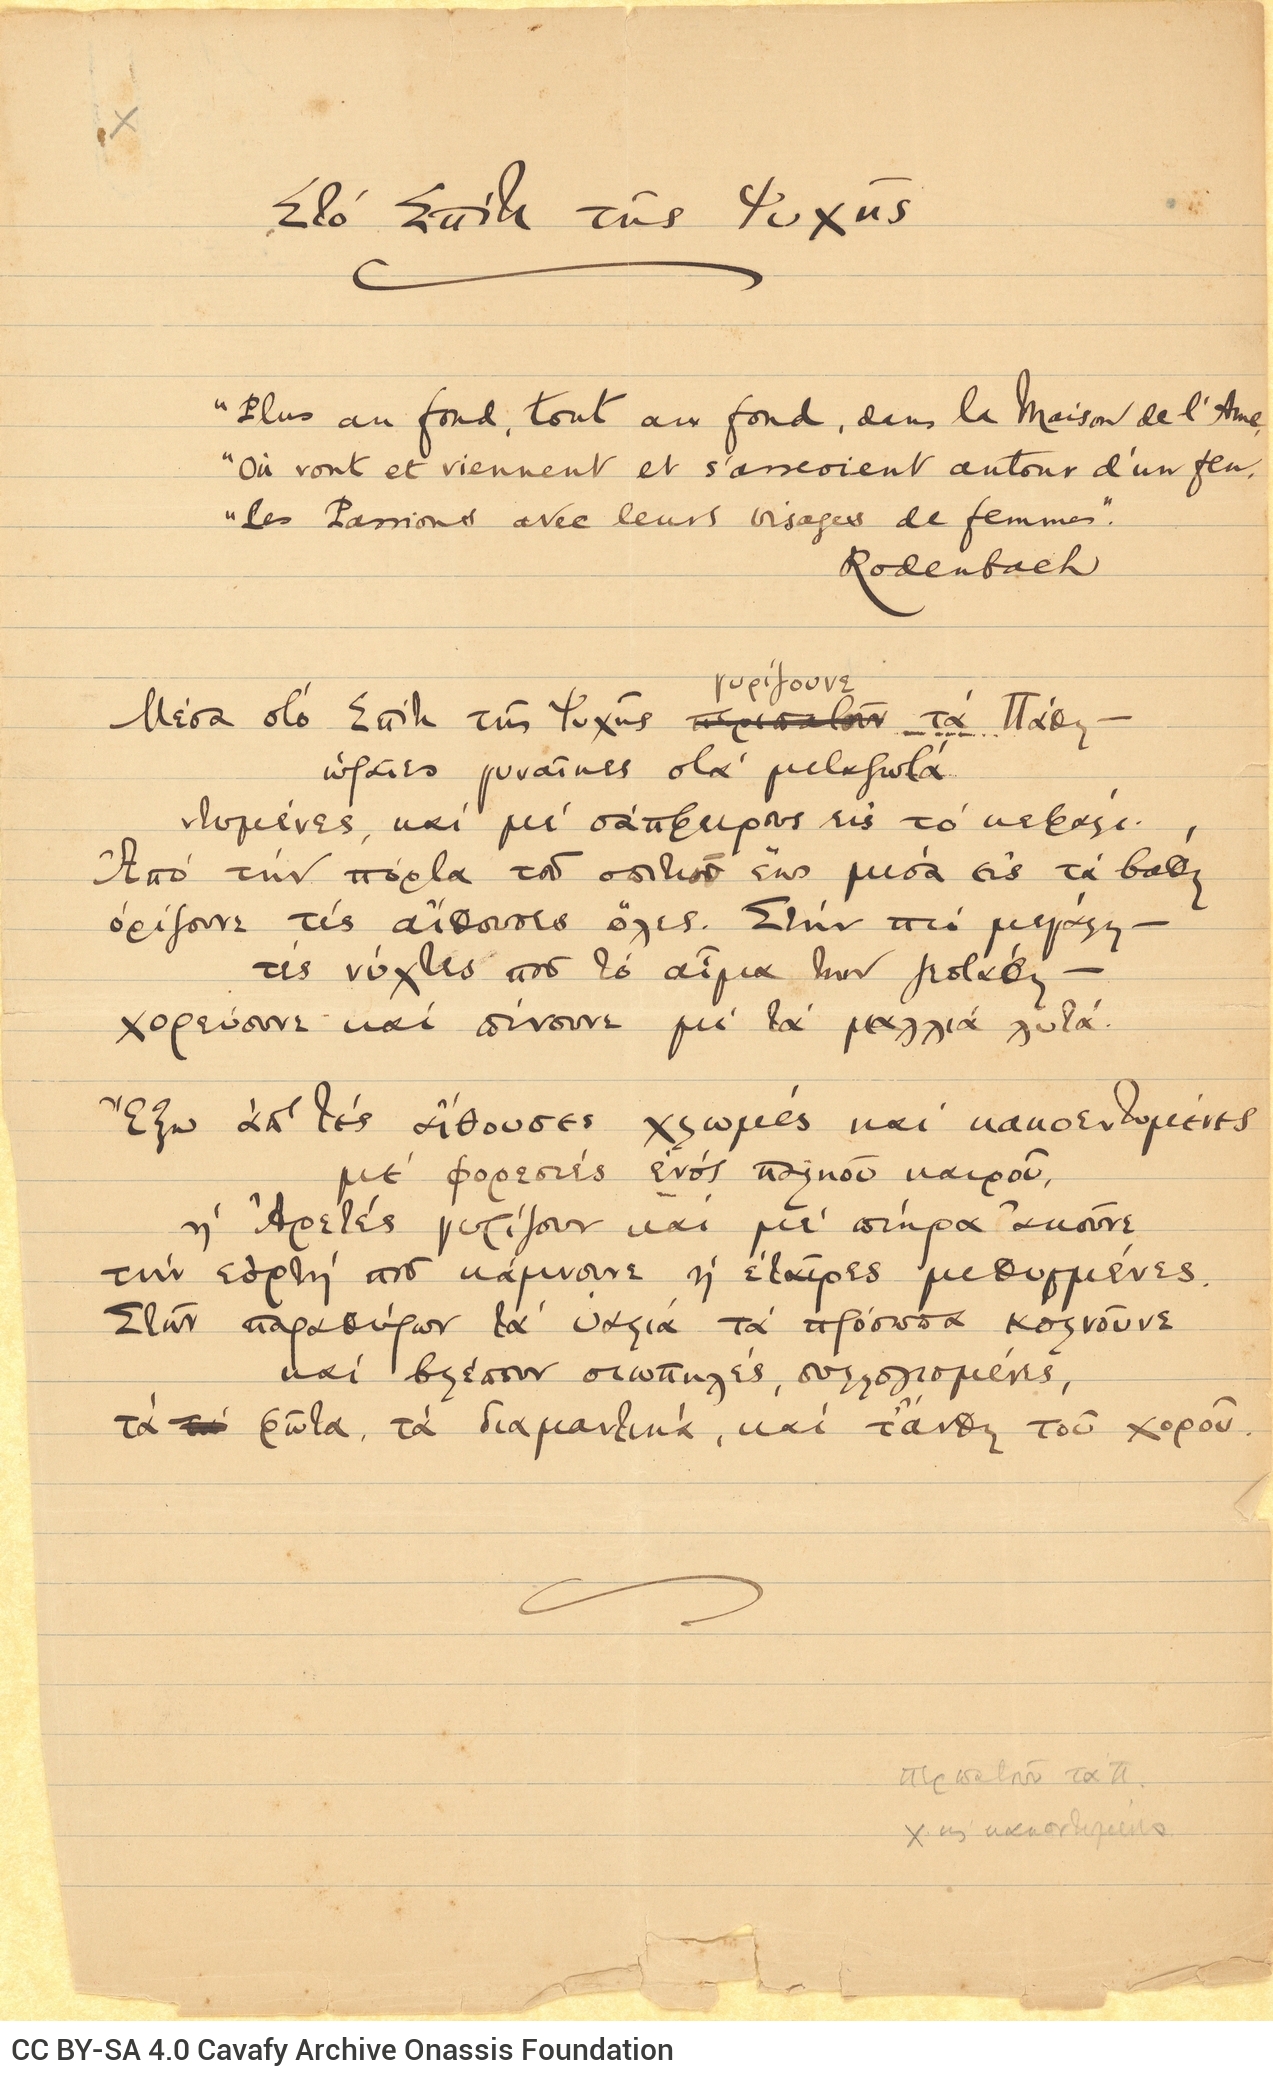 x
Στό Σπίτι τῆς Ψυχῆς
"Plus au fond, tout au fond, dans la Maison de l'Ame,
"Où vont et viennent et s'asseoient autour d'un feu,
"Les Passions avec leurs visages de femmes".
Rodenbach
γυρίζουνε
Μέσα στό Σπίτι τῆς Ψυχῆς περιπατοῦν τά Πάθη —
ὡραῖες γυναῖκες στά μεταξωτά
ντυμένες, καί μέ σάπφειρους εἰς τό κεφάλι.
Ἀπό τήν πόρτα τοῦ σπιτιοῦ ἕως μεσά εἰς τά βάθη
ὁρίζουνε τές αἴθουσες ὅλες. Στήν πιό μεγάλη —
τές νύχτες ποῦ τό αἷμα των ζεστάθη —
χορεύουνε καί πίνουνε μέ τά μαλλιά λυτά.
Ἔξω ἀπ' τές αἴθουσες χλωμές καί κακοεντυμένες
μέ φορεσιές ἑνός παληοῦ καιροῦ,
ἡ Ἀρετές γυρίζουν καί μέ πίκρα ἀκοῦνε
τήν ἑορτή ποῦ κάμνουνε ἡ ἑταῖρες μεθυσμένες.
Στῶν παραθύρων τά ὑαλιά τά πρόσωπα κολνοῦνε
καί βλέπουν σιωπηλές, συλλογισμένες,
τά τά φῶτα, τά διαμαντικά, καί τἄνθη τοῦ χοροῦ.
περπατοῦν τά Π.
CC BY-SA 4.0 Cavafy Archive Onassis Foundation